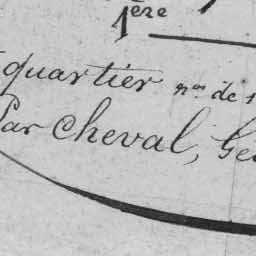 1ère
quartier nos de 1
Par Cheval, Gé